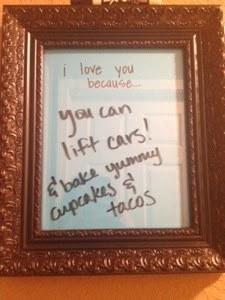 i love you
because...
you can
lift cars!
& bake yummy
cupcakes &
tacos